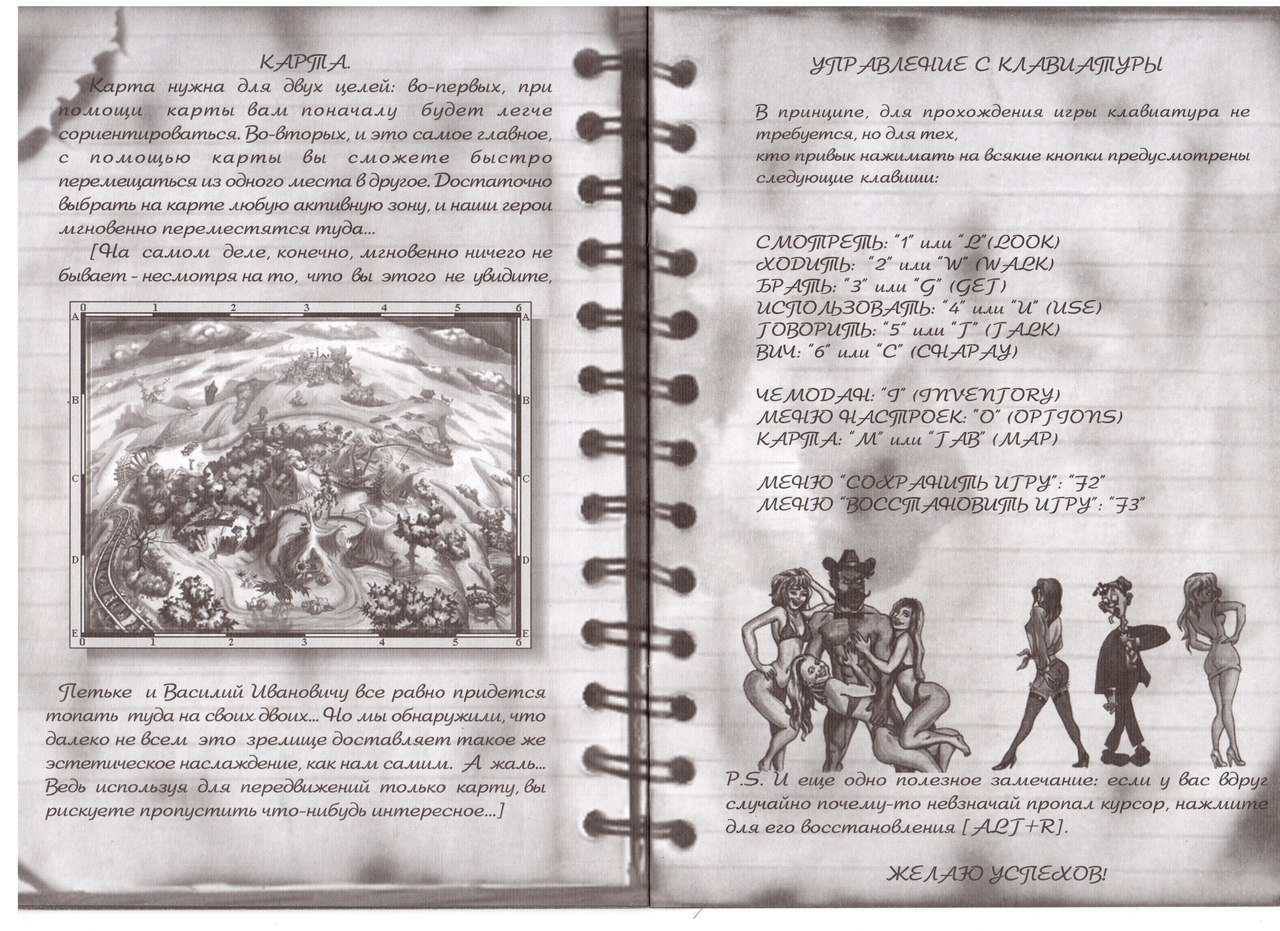 КАРТА.
Карта нужна для двух целей: во-первых, при
помощи карты вам поначалу будет легче
сориентироваться. Во-вторых, и это самое главное,
с помощью карты вы сможете быстро
перемещаться из одного места в другое. Достаточно
выбрать на карте любую активную зону, и наши герои
мгновенно переместятся туда...
[На самом деле, конечно, мгновенно ничего не
бывает - несмотря на то, что вы этого не увидите,
0 1 2 3 4 5 6
A A
B B
C C
D D
E E
0 1 2 3 4 5 6
Петьке и Василий Ивановичу все равно придется
топать туда на своих двоих... Но мы обнаружили, что
далеко не всем это зрелище доставляет такое же
эстетическое наслаждение, как нам самим. А жаль...
Ведь используя для передвижений только карту, вы
рискуете пропустить что-нибудь интересное...]
УПРАВЛЕНИЕ С КЛАВИАТУРЫ
В принципе, для прохождения игры клавиатура не
требуется, но для тех,
кто привык нажимать на всякие кнопки предусмотрены
следующие клавиши:
СМОТРЕТЬ: "1" или "L"(LOOK)
ХОДИТЬ: "2" или "W" (WALK)
БРАТЬ: "3" или "G" (GET)
ИСПОЛЬЗОВАТЬ: "4" или "U" (USE)
ГОВОРИТЬ: "5" или "T" (TALK)
ВИЧ: "6" или "C" (CHAPAY)
ЧЕМОДАН: "I" (INVENTORY)
МЕНЮ НАСТРОЕК: "O" (OPTIONS)
КАРТА: "M" или "TAB" (MAP)
МЕНЮ "СОХРАНИТЬ ИГРУ": "F2"
МЕНЮ "ВОССТАНОВИТЬ ИГРУ": "F3"
P.S. И еще одно полезное замечание: если у вас вдруг
случайно почему-то невзначай пропал курсор, нажмите
для его восстановления [ALT+R].
ЖЕЛАЮ УСПЕХОВ!